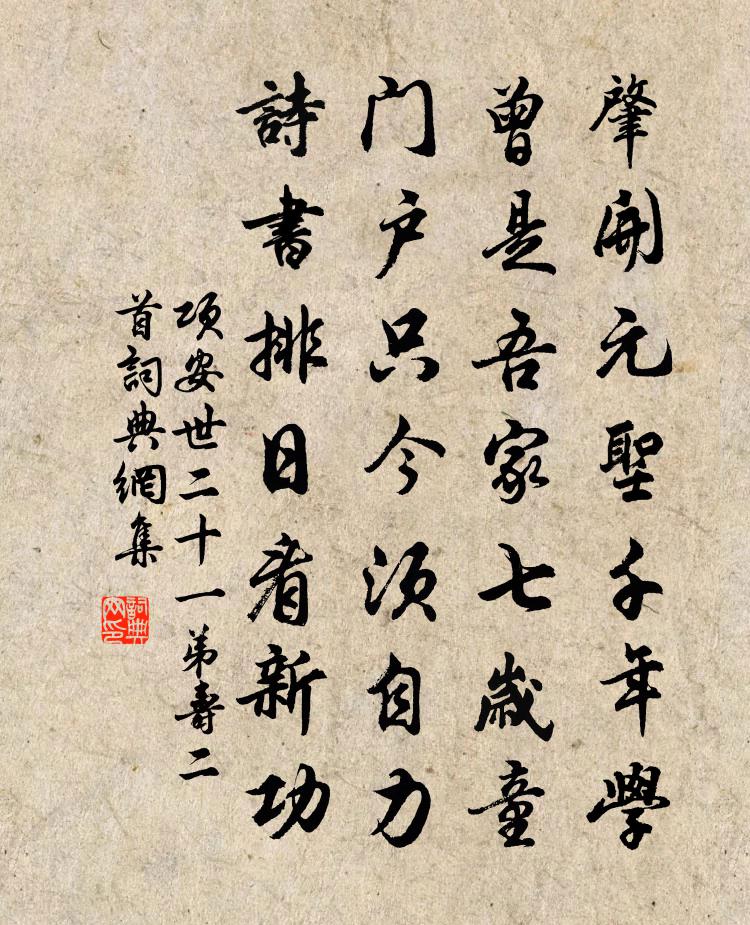 肇開元聖千年學
曾是吾家七歲童
门户只今須自力
詩書排日看新功
項安世二十一弟壽二
首詞典網集
詞典
网印